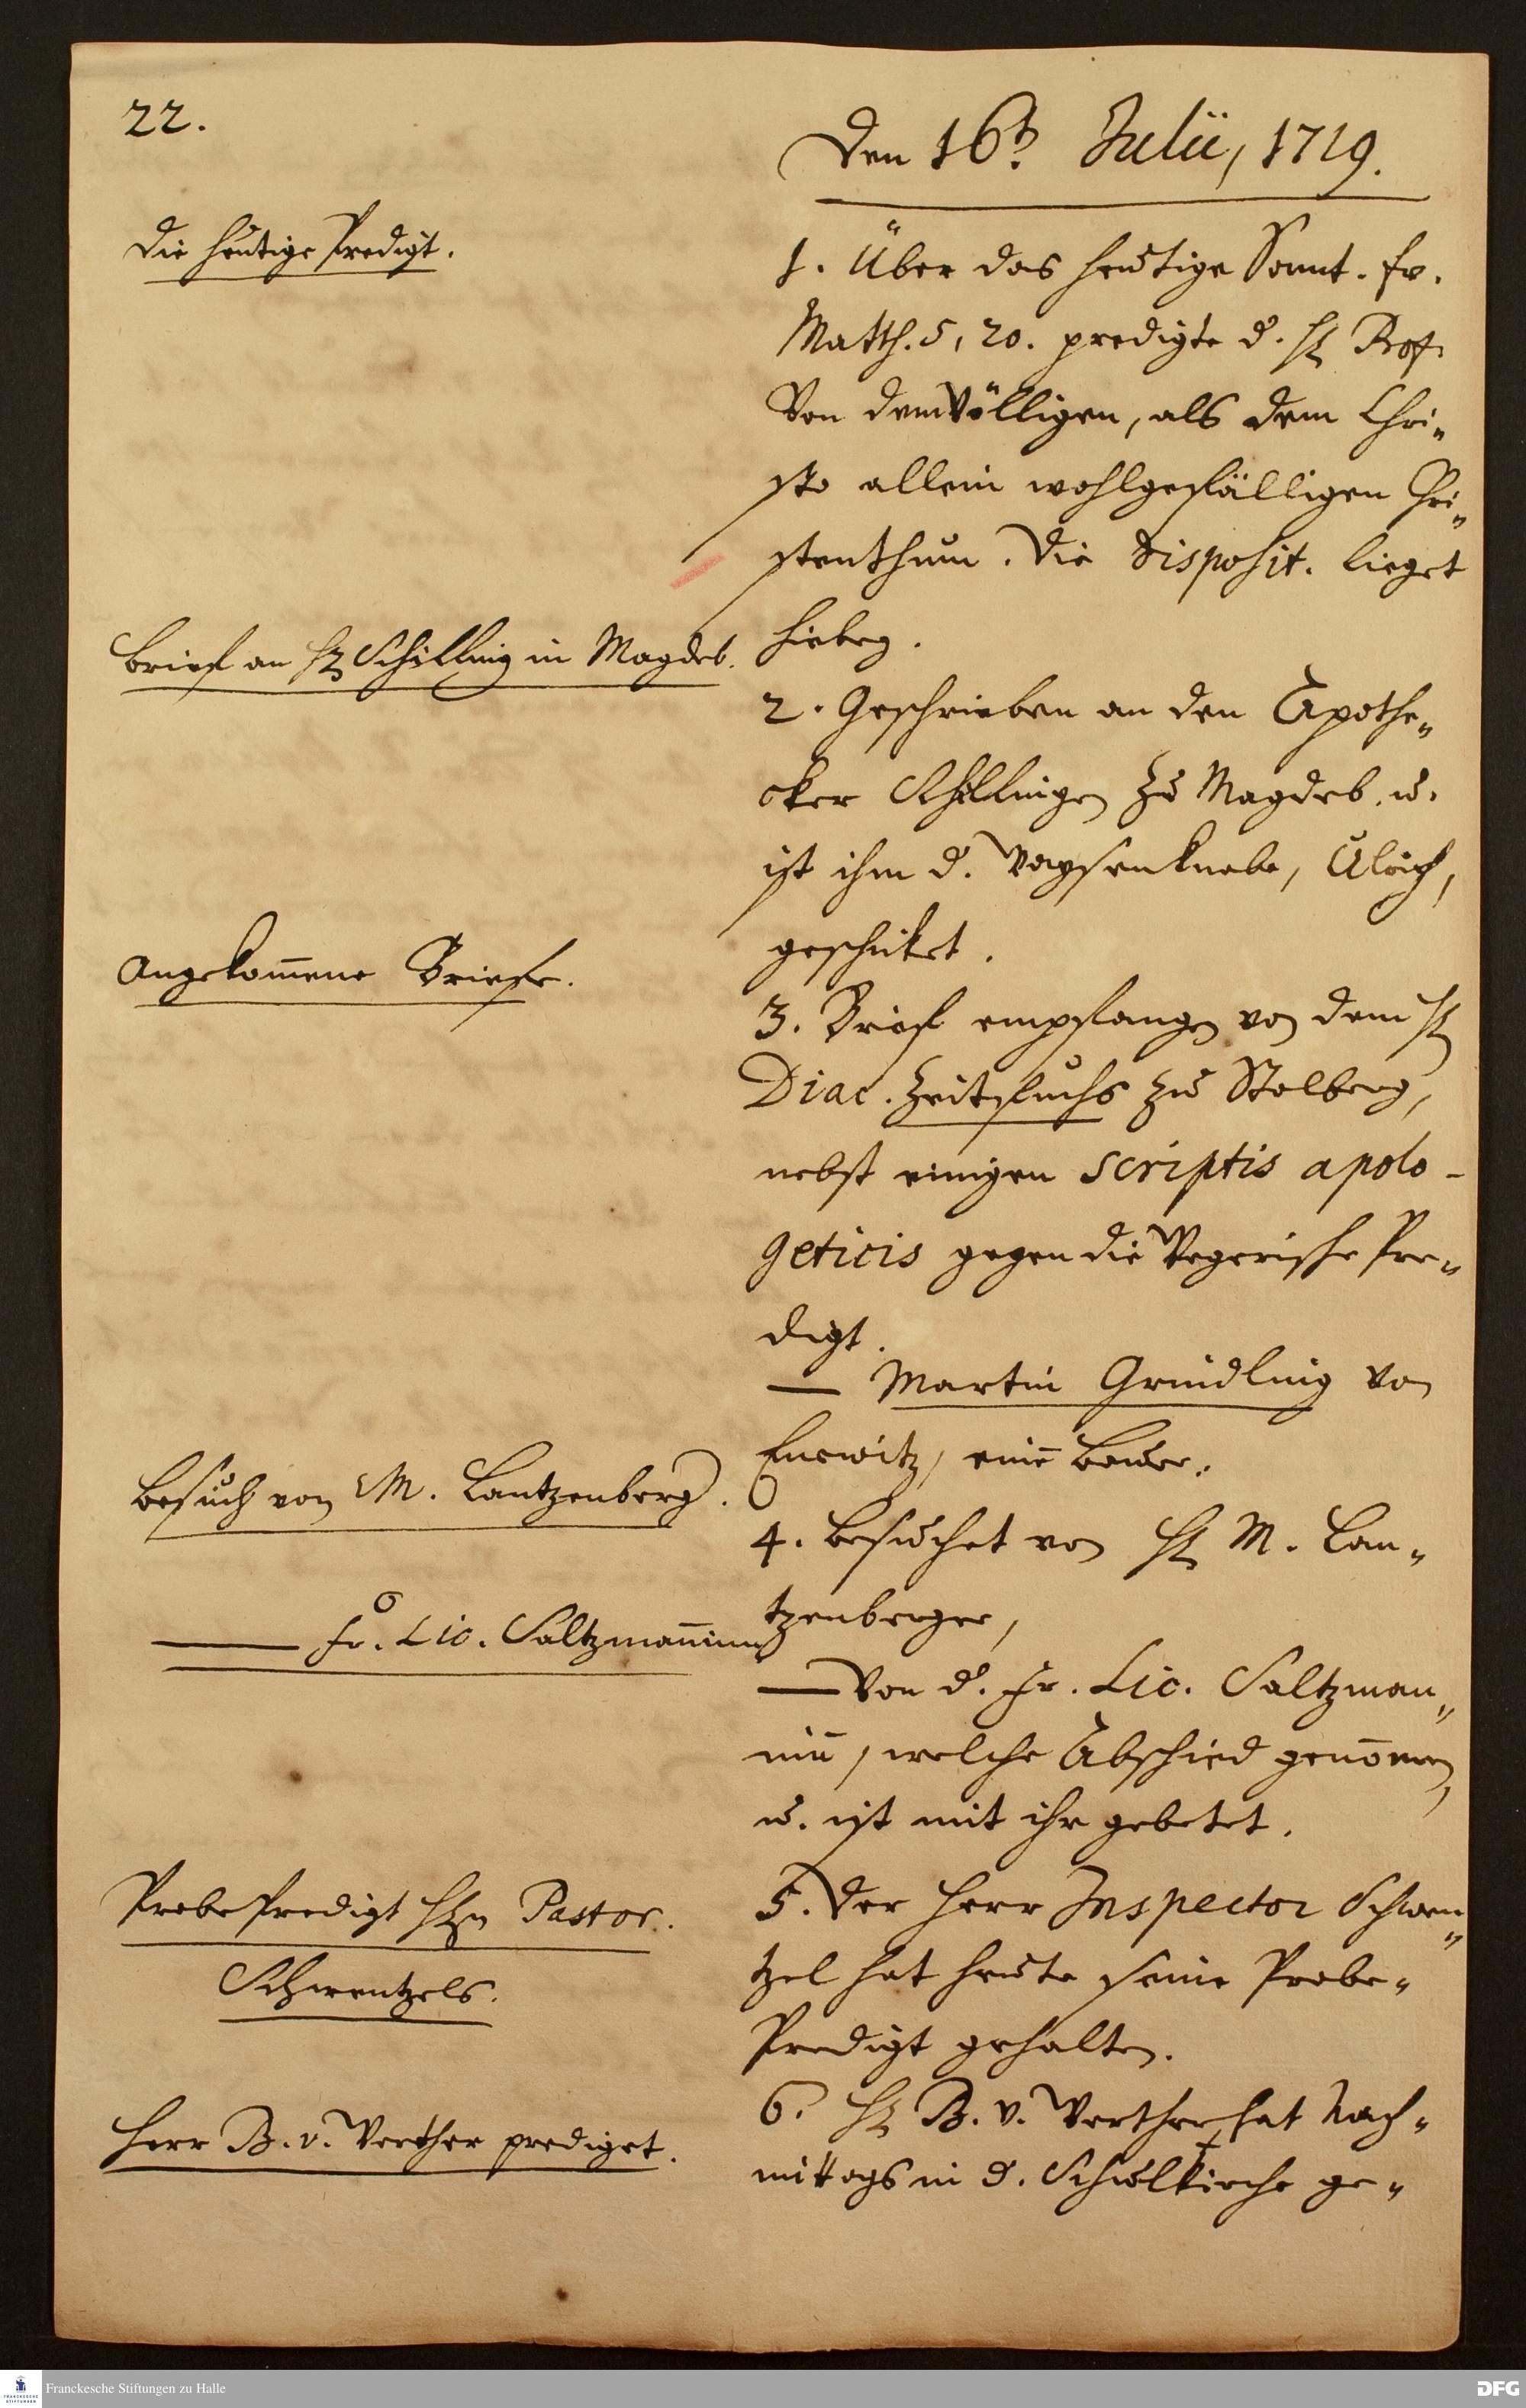 22.
Den 16t. Julii, 1719.
Die heutige Predigt.
1. Über das heutige Sonnt. Ev.
Matth. 5, 20. predigte d. H. Prof.
Von dem völligen, als dem Chri„
sto allein wohlgefälligen Chri„
stenthum. Die Disposit. lieget
hiebey.
Brief an H. Schilling in Magdeb.
2. Geschrieben an den Apothe„
cker Schillingen zu Magdeb. u.
ist ihm d. Waysenknabe, Ulrich,
geschicket.
Angekom̅ene Briefe.
3. Brief empfangen von dem H.
Diac. Zeitfuchs zu Stolberg,
nebst einigen scriptis apolo-
geticis gegen die Pre„
digt.
— Martin Gründling von
eine
Besuch von M. Lantzenberg.
4. Besuchet von H. M. Lan„
tzenberger,
— Fr. Lic. Saltzman̅in
— Von d. Fr. Lic. Saltzman„
nin, welche Abschied genom̅en,
u. ist mit ihr gebetet.
Probe Predigt H. Pastor.
Schwentzels.
5. Der Herr Inspector Schwen„
tzel hat heute seine Probe„
Predigt gehalten.
Herr B. v. Werther prediget.
6. H. B. v. Werther hat Nach„
mittags in d. Schulkirche ge„
Franckesche Stiftungen zu Halle
DFG